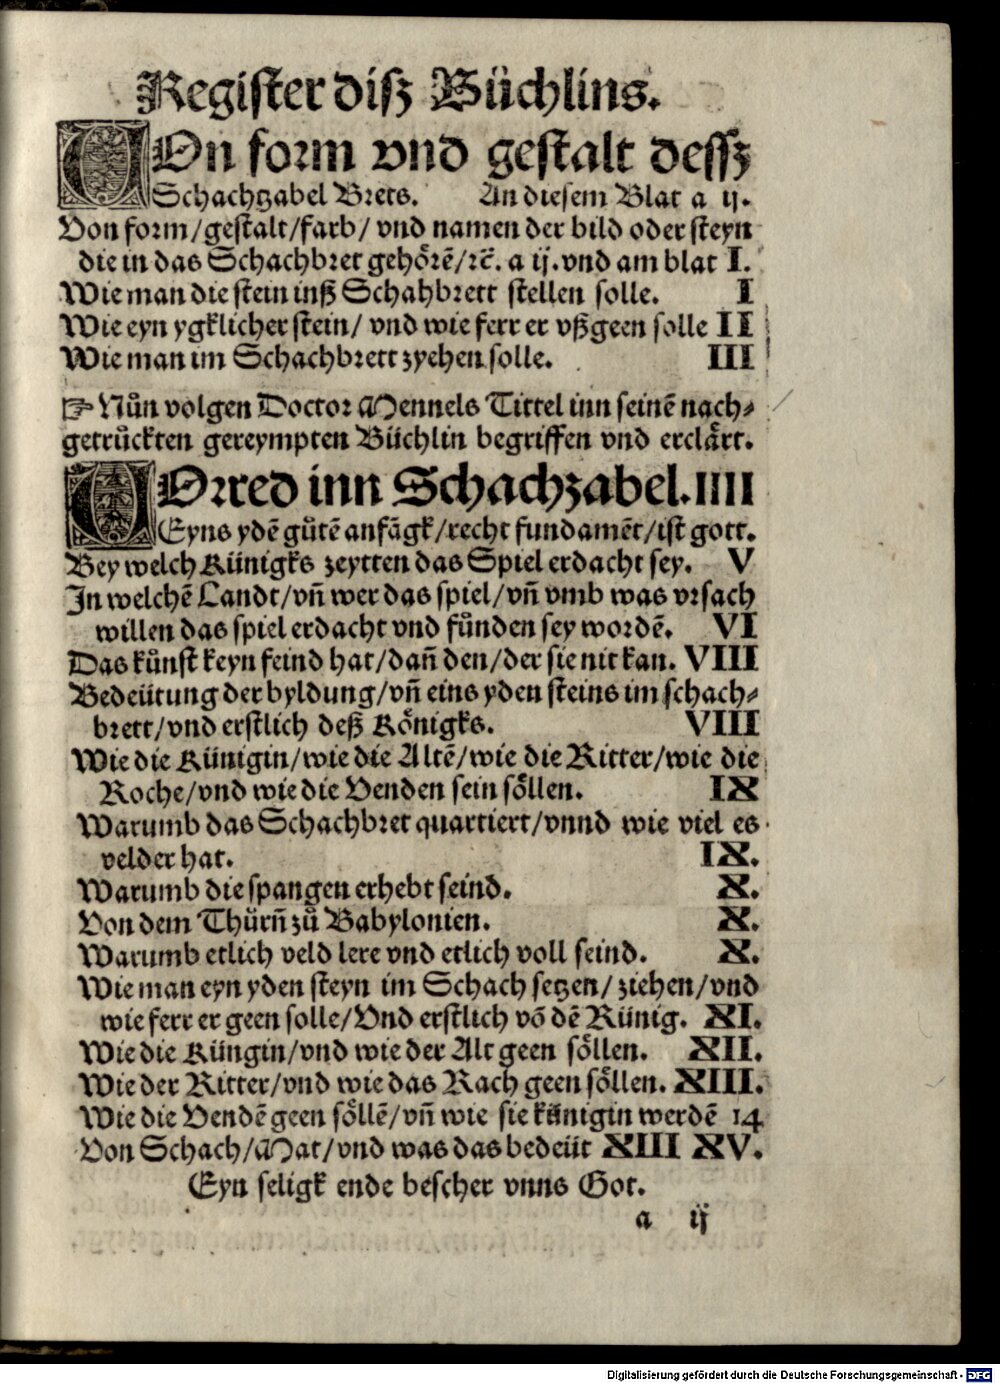 Register diſz Büchlins.
VOn form vnd geſtalt deſſz
Schachtzabel Brets. An dieſem Blat a ij.
Von form/geſtalt/farb/ vnd namen der bild oder ſteyn
die in das Schachbret gehoͤrē/ꝛc̄. a ij. vnd am blat I.
Wie man die ſtein inß Schahbrett ſtellen ſolle. I
Wie eyn ygklicher ſtein/ vnd wie ferr er vßgeen ſolle II
Wie man im Schachbrett zyehen ſolle. III
☞ Nuͦn volgen Doctor Mennels Tittel inn ſeinē nach⸗
getruͤckten gereympten Büchlin begriffen vnd erclaͤrt.
VOrred inn Schachzabel. IIII
Eyns ydē guͦtē anfāgk/recht fundamēt/iſt gott.
Bey welch Künigks zeytten das Spiel erdacht ſey. V
In welchē Landt/vn̄ wer das ſpiel/vn̄ vmb was vrſach
willen das ſpiel erdacht vnd fuͦnden ſey wordē. VI
Das kuͦnſt keyn feind hat/dan̄ den/der ſie nit kan. VIII
Bedeütung der byldung/vn̄ eins yden ſteins im ſchach⸗
brett/vnd erſtlich deß Koͤnigks. VIII
Wie die Künigin/wie die Altē/wie die Ritter/wie die
Roche/vnd wie die Venden ſein ſoͤllen. IX
Warumb das Schachbret quartiert/vnnd wie viel es
velder hat. IX.
Warumb die ſpangen erhebt ſeind. X.
Von dem Thürn̄ zuͦ Babylonien. X.
Warumb etlich veld lere vnd etlich voll ſeind. X.
Wie man eyn yden ſteyn im Schach ſetzen/ ziehen/vnd
wie ferr er geen ſolle/Vnd erſtlich vō dē Künig. XI.
Wie die Küngin/vnd wie der Alt geen ſoͤllen. XII.
Wie der Ritter/vnd wie das Rach geen ſoͤllen. XIII.
Wie die Vendē geen ſoͤllē/vn̄ wie ſie künigin werdē 14
Von Schach/Mat/vnd was das bedeüt XIII XV.
Eyn ſeligk ende beſcher vnns Got.
a ij
Digitalisierung gefördert durch die Deutsche Forschungsgemeinschaft - DFG